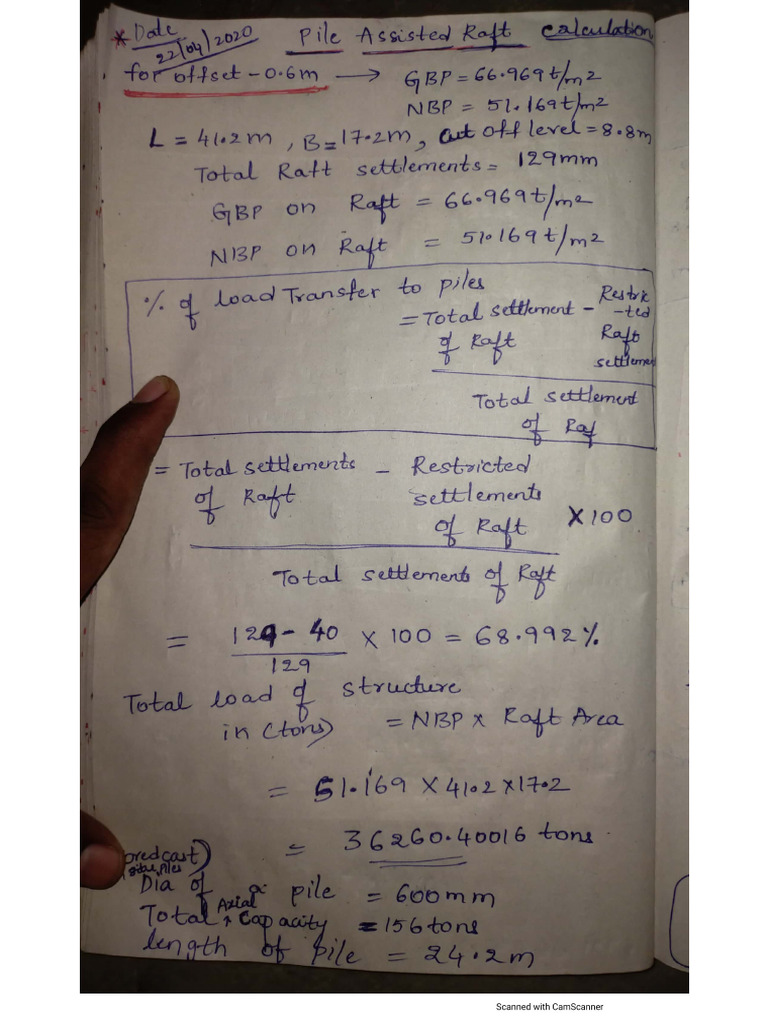 * Date
22/04/2020
Pile Assisted Raft Calculation
for offset - 0.6m → GBP = 66.969t/m2
NBP = 51.169t/m2
L = 41.2m , B = 17.2m, Cut off level = 8.8m
Total Raft settlements = 129mm
GBP on Raft = 66.969t/m2
NBP on Raft = 51.169t/m2
% of load Transfer to piles
= Total settlement of Raft - Restric-ted Raft settlemen
Total settlement of Raf
= Total settlements of Raft - Restricted settlements of Raft × 100
Total settlements of Raft
= 129 - 40 × 100 = 68.992%
129
Total load of structure
in (tons) = NBP × Raft Area
= 51.169 × 41.2 × 17.2
= 36260.40016 tons
Dia of a pile = 600mm
Total Axial Capacity = 156tons
length of pile = 24.2m
Scanned with CamScanner